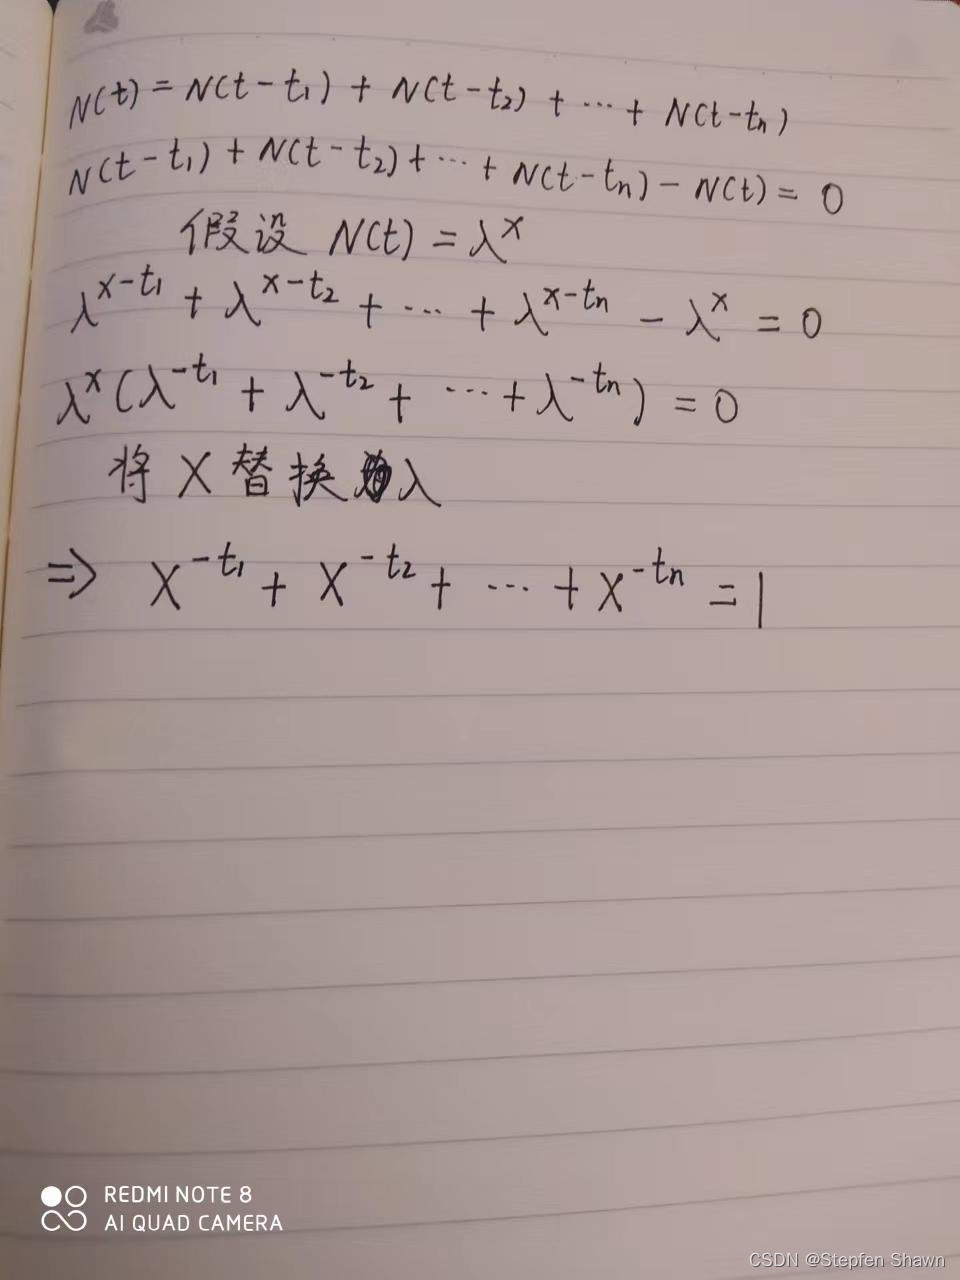 N(t) = N(t-t₁) + N(t-t₂) + ... + N(t-tₙ)
N(t-t₁) + N(t-t₂) + ... + N(t-tₙ) - N(t) = 0
假设 N(t) = λˣ
λ^(x-t₁) + λ^(x-t₂) + ... + λ^(x-tₙ) - λ^x = 0
λ^x (λ^(-t₁) + λ^(-t₂) + ... + λ^(-tₙ)) = 0
将 X 替换 λ
⇒ X^(-t₁) + X^(-t₂) + ... + X^(-tₙ) = 1
REDMI NOTE 8
AI QUAD CAMERA
CSDN @Stepfen Shawn